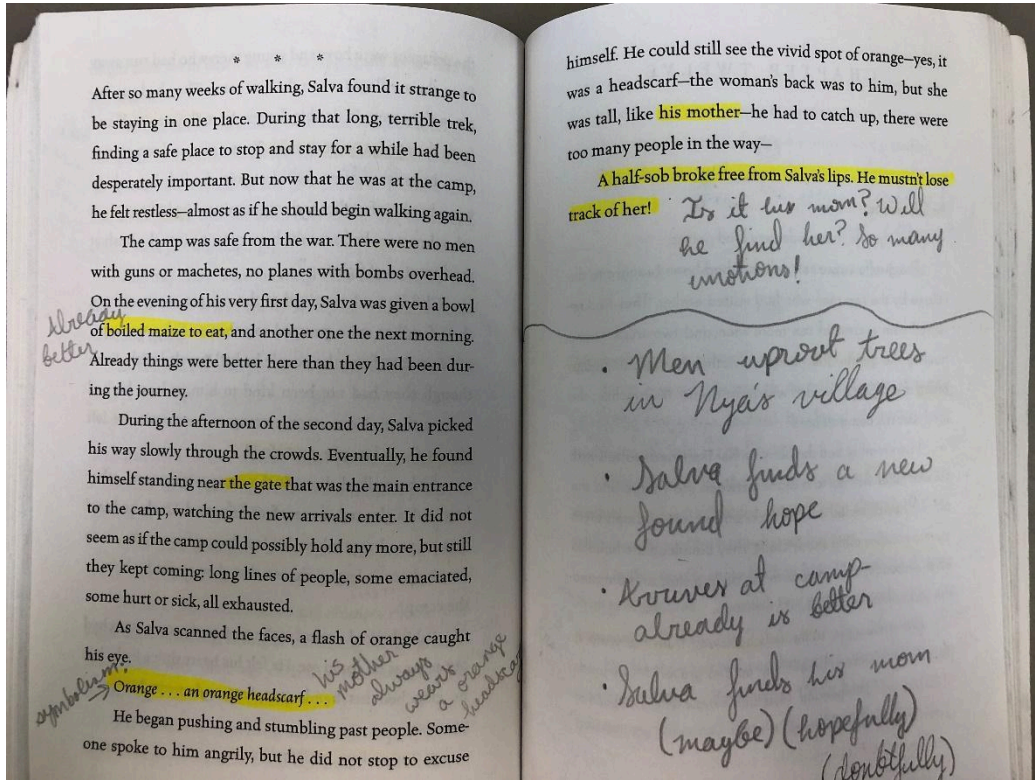 * * *
After so many weeks of walking, Salva found it strange to
be staying in one place. During that long, terrible trek,
finding a safe place to stop and stay for a while had been
desperately important. But now that he was at the camp,
he felt restless—almost as if he should begin walking again.
The camp was safe from the war. There were no men
with guns or machetes, no planes with bombs overhead.
On the evening of his very first day, Salva was given a bowl
of boiled maize to eat, and another one the next morning.
Already things were better here than they had been dur-
ing the journey.
Already
better
During the afternoon of the second day, Salva picked
his way slowly through the crowds. Eventually, he found
himself standing near the gate that was the main entrance
to the camp, watching the new arrivals enter. It did not
seem as if the camp could possibly hold any more, but still
they kept coming: long lines of people, some emaciated,
some hurt or sick, all exhausted.
As Salva scanned the faces, a flash of orange caught
his eye.
Orange . . . an orange headscarf . . .
symbolism
his
mother
always
wears
a orange
headscarf
He began pushing and stumbling past people. Some-
one spoke to him angrily, but he did not stop to excuse
himself. He could still see the vivid spot of orange—yes, it
was a headscarf—the woman's back was to him, but she
was tall, like his mother—he had to catch up, there were
too many people in the way—
A half-sob broke free from Salva's lips. He mustn't lose
track of her!
Is it his mom? Will
he find her? So many
emotions!
• Men uproot trees
in Nya's village
• Salva finds a new
found hope
• Arrives at camp-
already is better
• Salva finds his mom
(maybe) (hopefully)
(doubtfully)